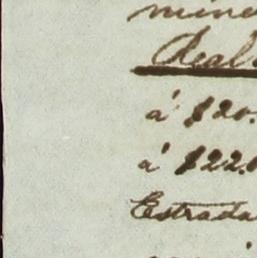 mine
Real
á $20.
á $22.
Estrada